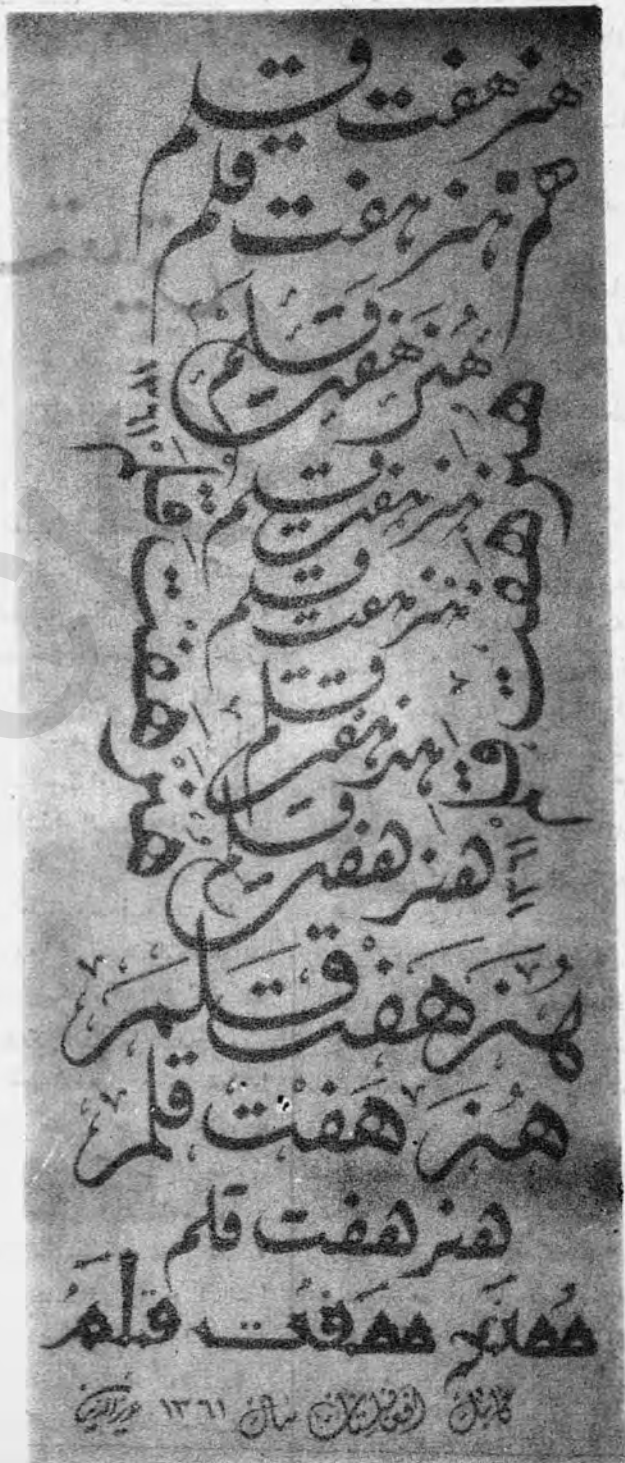 هنر هفت قلم
هم هنر هفت قلم
هُنَر هَفت قَلَم
هنر هفت قلم
هنر هفت قلم
هنر هفت قلم
هنر هفت قلم
هنر هفت قلم ۱۳۶۱
هنر هفت قلم ۱۳۶۱
هُنَر هَفْت قَلَم
هُنَر هَفْت قلم
هنر هفت قلم
هُنَر هَفت قَلَمُ
افغانستان سال ۱۳۶۱ عزیزالدین